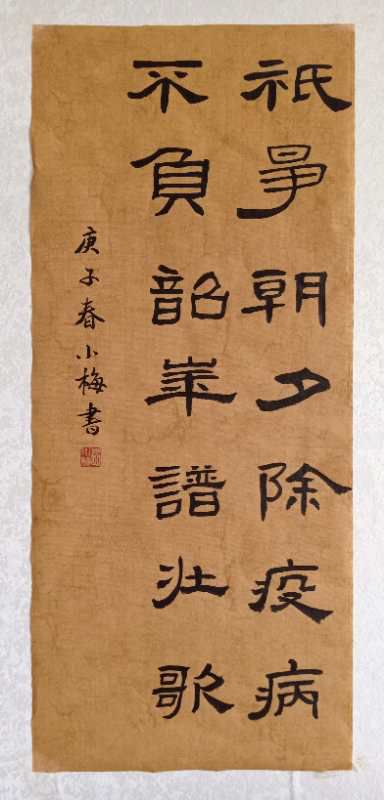 祇爭朝夕除疫病
不負韶華譜壯歌
庚子春小梅書